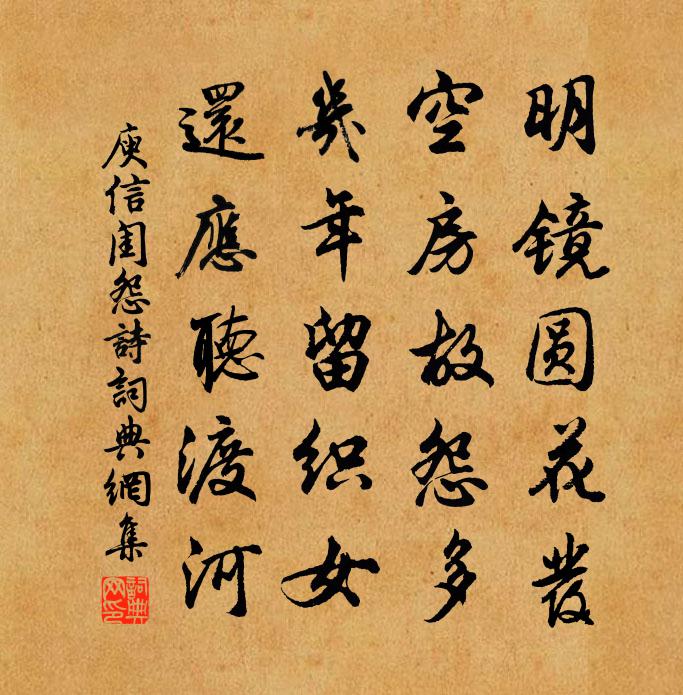 明镜圆花發
空房故怨多
幾年留织女
還應聽渡河
庾信閨怨詩詞典網集
詞典网印